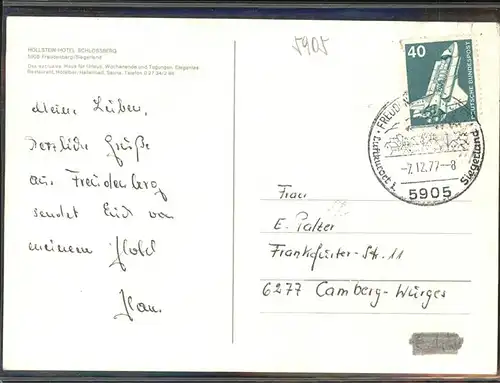 HOLLSTEIN-HOTEL SCHLOSSBERG
5905 Freudenberg/Siegerland
Das exklusive Haus für Urlaub, Wochenende und Tagungen. Elegantes
Restaurant, Hotelbar, Hallenbad, Sauna.
5905
40
DEUTSCHE BUNDESPOST
Luftkurort i. Siegerland
-7.12.77-8
5905
Meine Lieben,
herzliche Grüße
aus Freudenberg
sendet Euch von
meinem
Frau
E. Palzer
Frankfurter-Str. 11
6277 Camberg-Würges